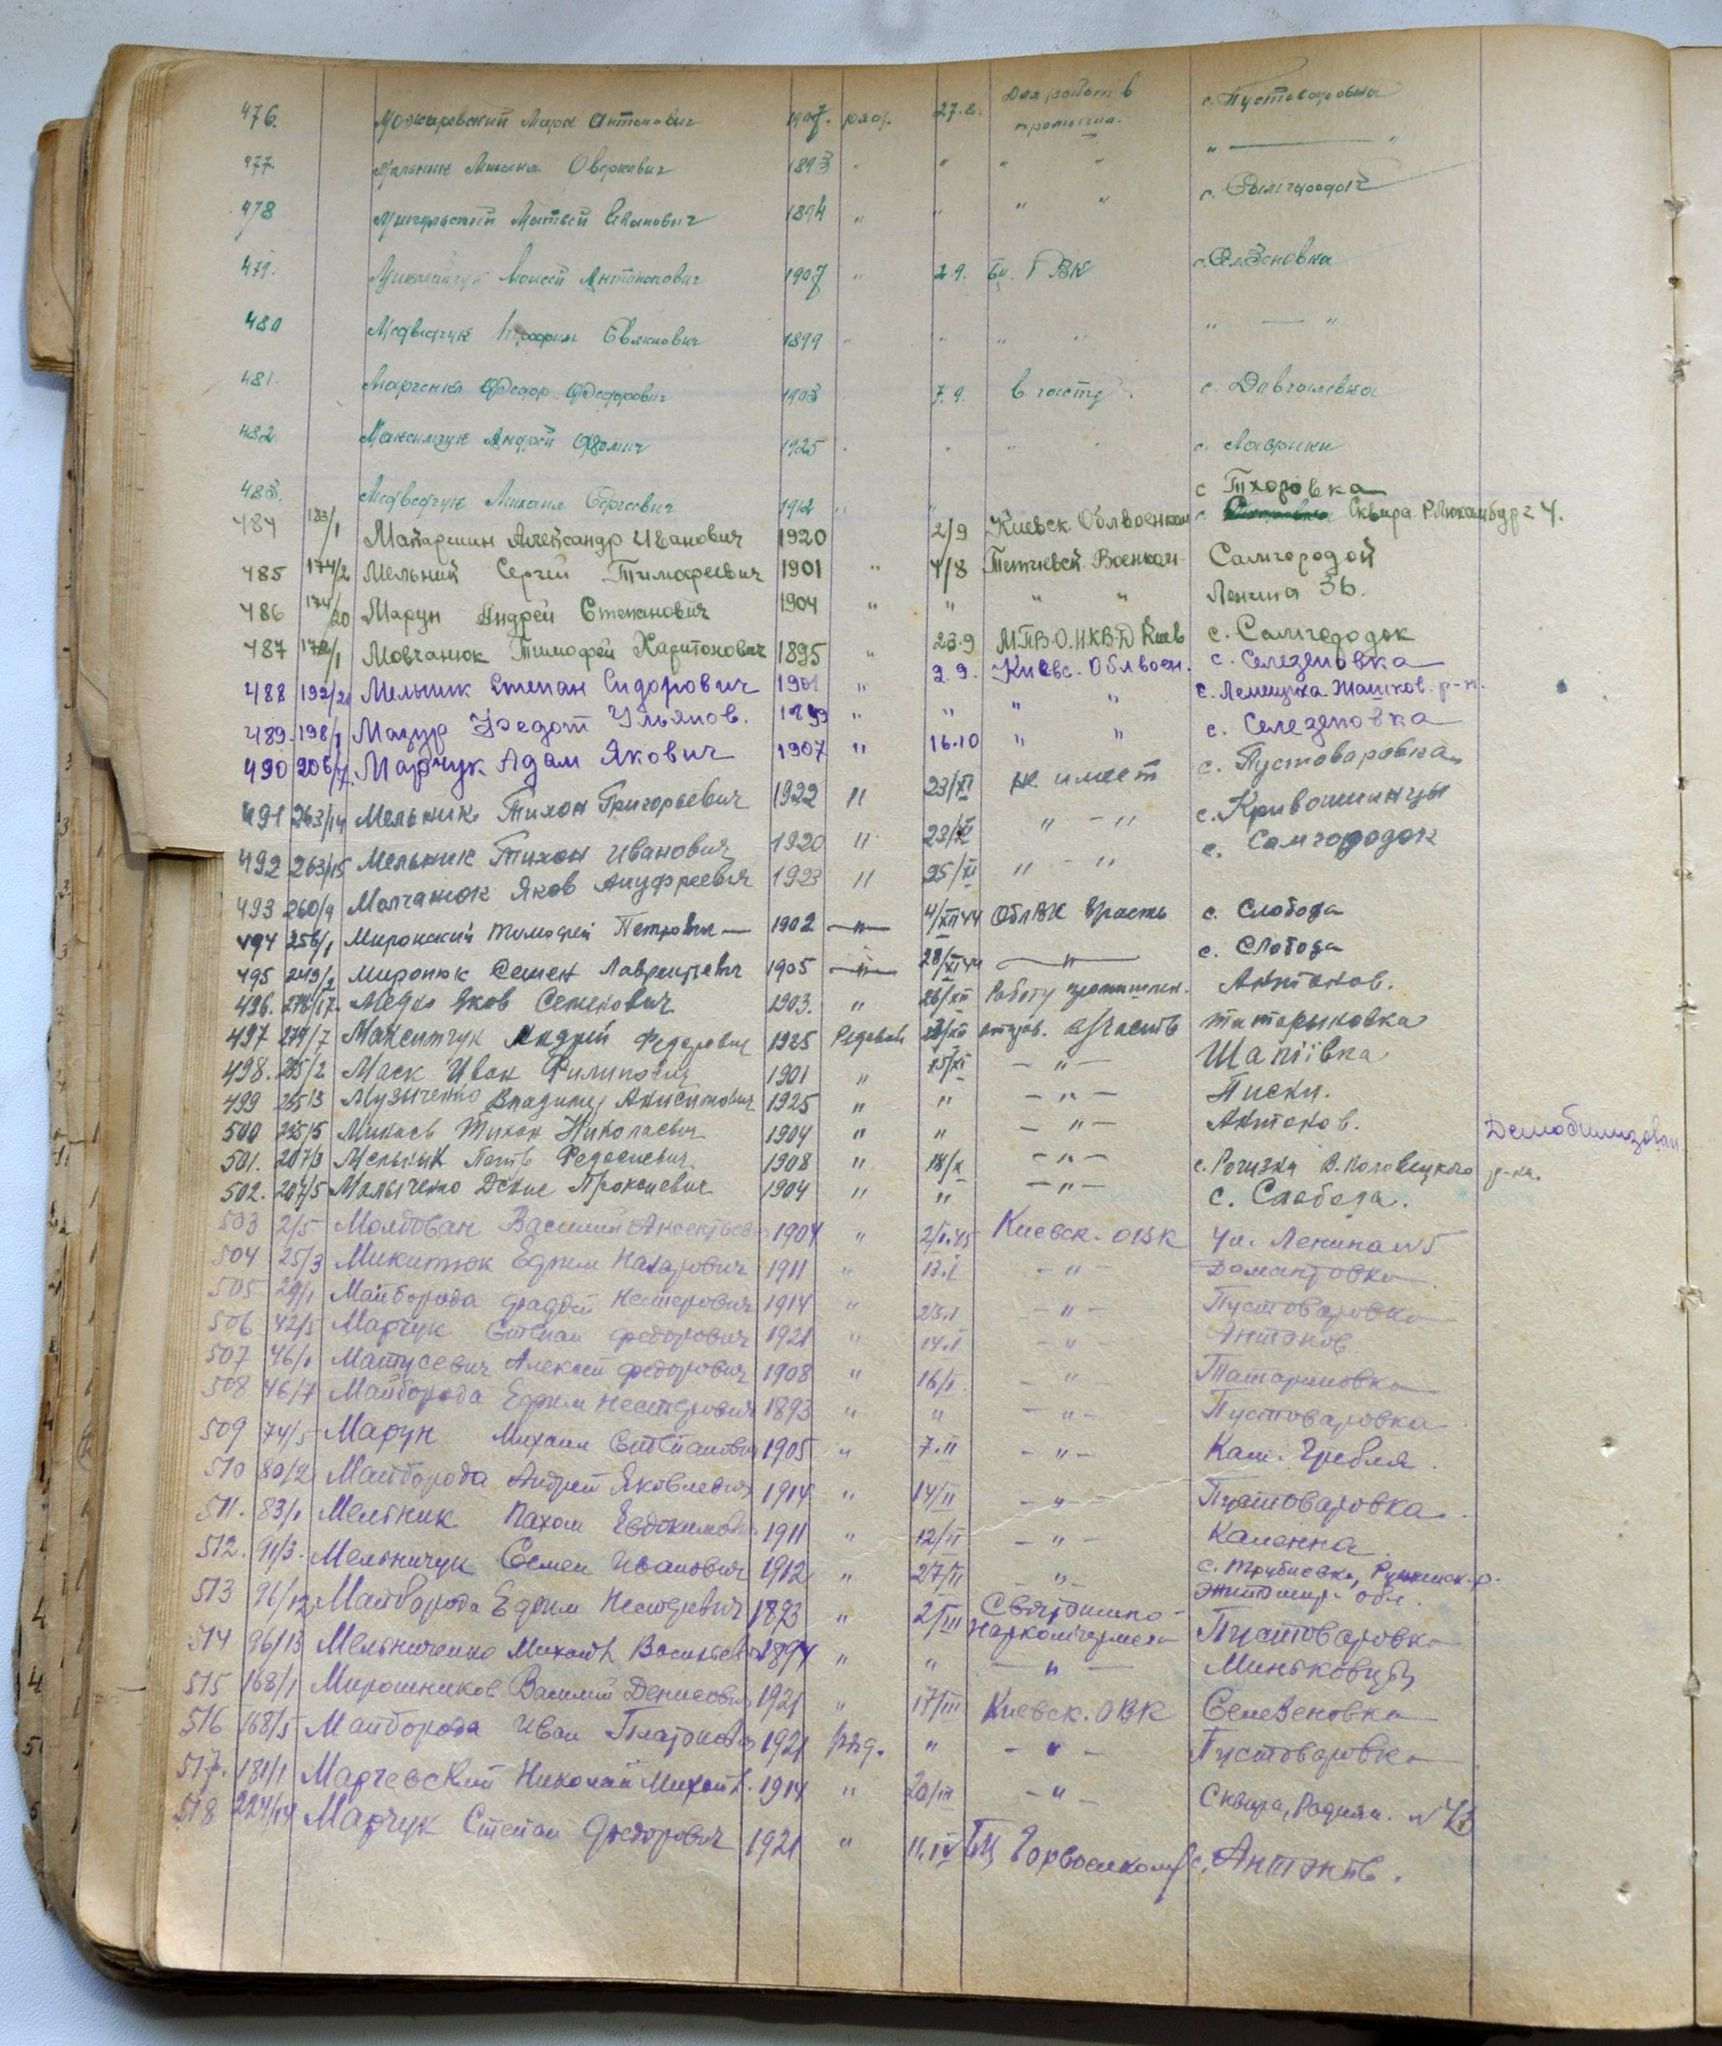 476. Можаровский Марк Антонович 1907. ряд. 27.8. Для работ в промышл. с. Пустоваровка
477. Мельник Оверкович 1893 " " " " " — "
478 Матвей Иванович 1894 " " " " с. Самгородок
479. Моисей Антонович 1907 " 2.9. Бц. ГВК с. Селезеновка
480 Медведчук 1899 " " " " " — "
481. Марченко Федор Федорович 1903 7.9. в часть с. Довгалевка
482 Максимчук Андрей 1925 " " " с. Лаврики
483. Медведчук Михаил Сергеевич 1912 " " с Тхоровка
484 183/1 Александр Иванович 1920 2/9 Киевск. Облвоенком с. Сквира Р.Люксамбург 4.
485 174/2 Мельник Сергей Тимофеевич 1901 " 4/8 Тетиевск. Военком. Самгородок
486 174/20 Марун Андрей Степанович 1904 " " " " Ленина 36.
487 178/1 Мовчанюк Тимофей Харитонович 1895 " 23.9 М.П.В.О.Н.К.В.Д Киев с. Самгородок
488 192/21 Мельник Степан Сидорович 1901 " 2.9. Киевс. Облвоен. с. Селезеновка
489. 198/1 Мазур Федот Ульянов. 1899 " " " " с. Лемещиха Жашков. р-н.
490 206/7. Марчук Адам Якович 1907 " 16.10 " " с. Селезеновка
491 263/14 Мельник Тихон Григорьевич 1922 " 23/XI не имеет с. Пустоваровка
492 263/15 Мельник Тихон Иванович 1920 " 23/XI " - " с. Кривошиинцы
493 260/9 Молчанюк Яков Ануфреевич 1923 " 25/XI " - " с. Самгородок
494 256/1 Миронский Тимофей Петрович — 1902 —"— 4/XII 44 ОблВК в часть с. Слобода
495 249/2 Миронюк Семен Лаврентевич 1905 —"— 28/XI 44 —"— с. Слобода
496. 278/17. Яков Семенович 1903. " 26/XII Работу промышлен. Антонов.
497 274/7 Максимчук Андрей Федорович 1925 Редовой отправ. в/часть Татарыновка
498. 235/2 Маск Иван Филипович 1901 " 15/XI - " - Шапіївка
499 235/3 Музыченко Владимир Анисимович 1925 " " - " - Писки.
500 235/5 Тихон Николаевич 1904 " " - " - Антонов. Демобилизован
501. 207/3 Мельник Петр Федосиевич 1908 " 18/X - " - с. Рогизки В. Половецкого р-на.
502. 207/5 Малыченко 1904 " " - " - с. Слобода.
503 2/5 Молдован Василий 1904 " 2/I.45 Киевск. ОВК Ул. Ленина №5
504 25/3 Микитюк Ефим Назарович 1911 " 13.I - " - Домантовка.
505 29/1 Майборода Фаддей Нестерович 1914 " 23.I - " - Пустоваровка
506 42/5 Марчук Степан Федорович 1921 " 14.I - " Антонов.
507 46/1 Матусевич Алексей Федорович 1908 " 16/I - " - Татариновка
508 46/7 Майборода Ефим Нестерович 1893 " " - " - Пустоваровка.
509 74/5 Марун Михаил Степанович 1905 " 7.II - " - Кам. Гребля.
510 80/2 Майборода Андрей Яковлевич 1914 " 14/II - " - Пустоваровка.
511. 83/1 Мельник Пахом Евдокимович 1911 " 12/II - " - Каленна.
512. 91/3. Мельничук Семен Иванович 1912 " 27/II - " - с. Трубиевка, Ружинск. р. Житомир. обл.
513 96/12 Майборода Ефим Нестеревич 1893 " 2/III Святошино- Пустоваровка
514 96/13 Мельниченко Михаил Васильев 1894 " " — " — Миньковцы
515 168/1 Мирошников Василий Денисович 1921 " 17/III Киевск. ОВК Селезеновка
516 168/5 Майборода Иван Платонович 1921 ряд. " - " - Пустоваровка
517. 181/1 Марчевский Николай Михайл. 1914 " 20/III - " - Сквира, Радянс. №73
518 224/14 Марчук Степан Федорович 1921 " 11.IV БЦ Горвоенком с. Антонов.